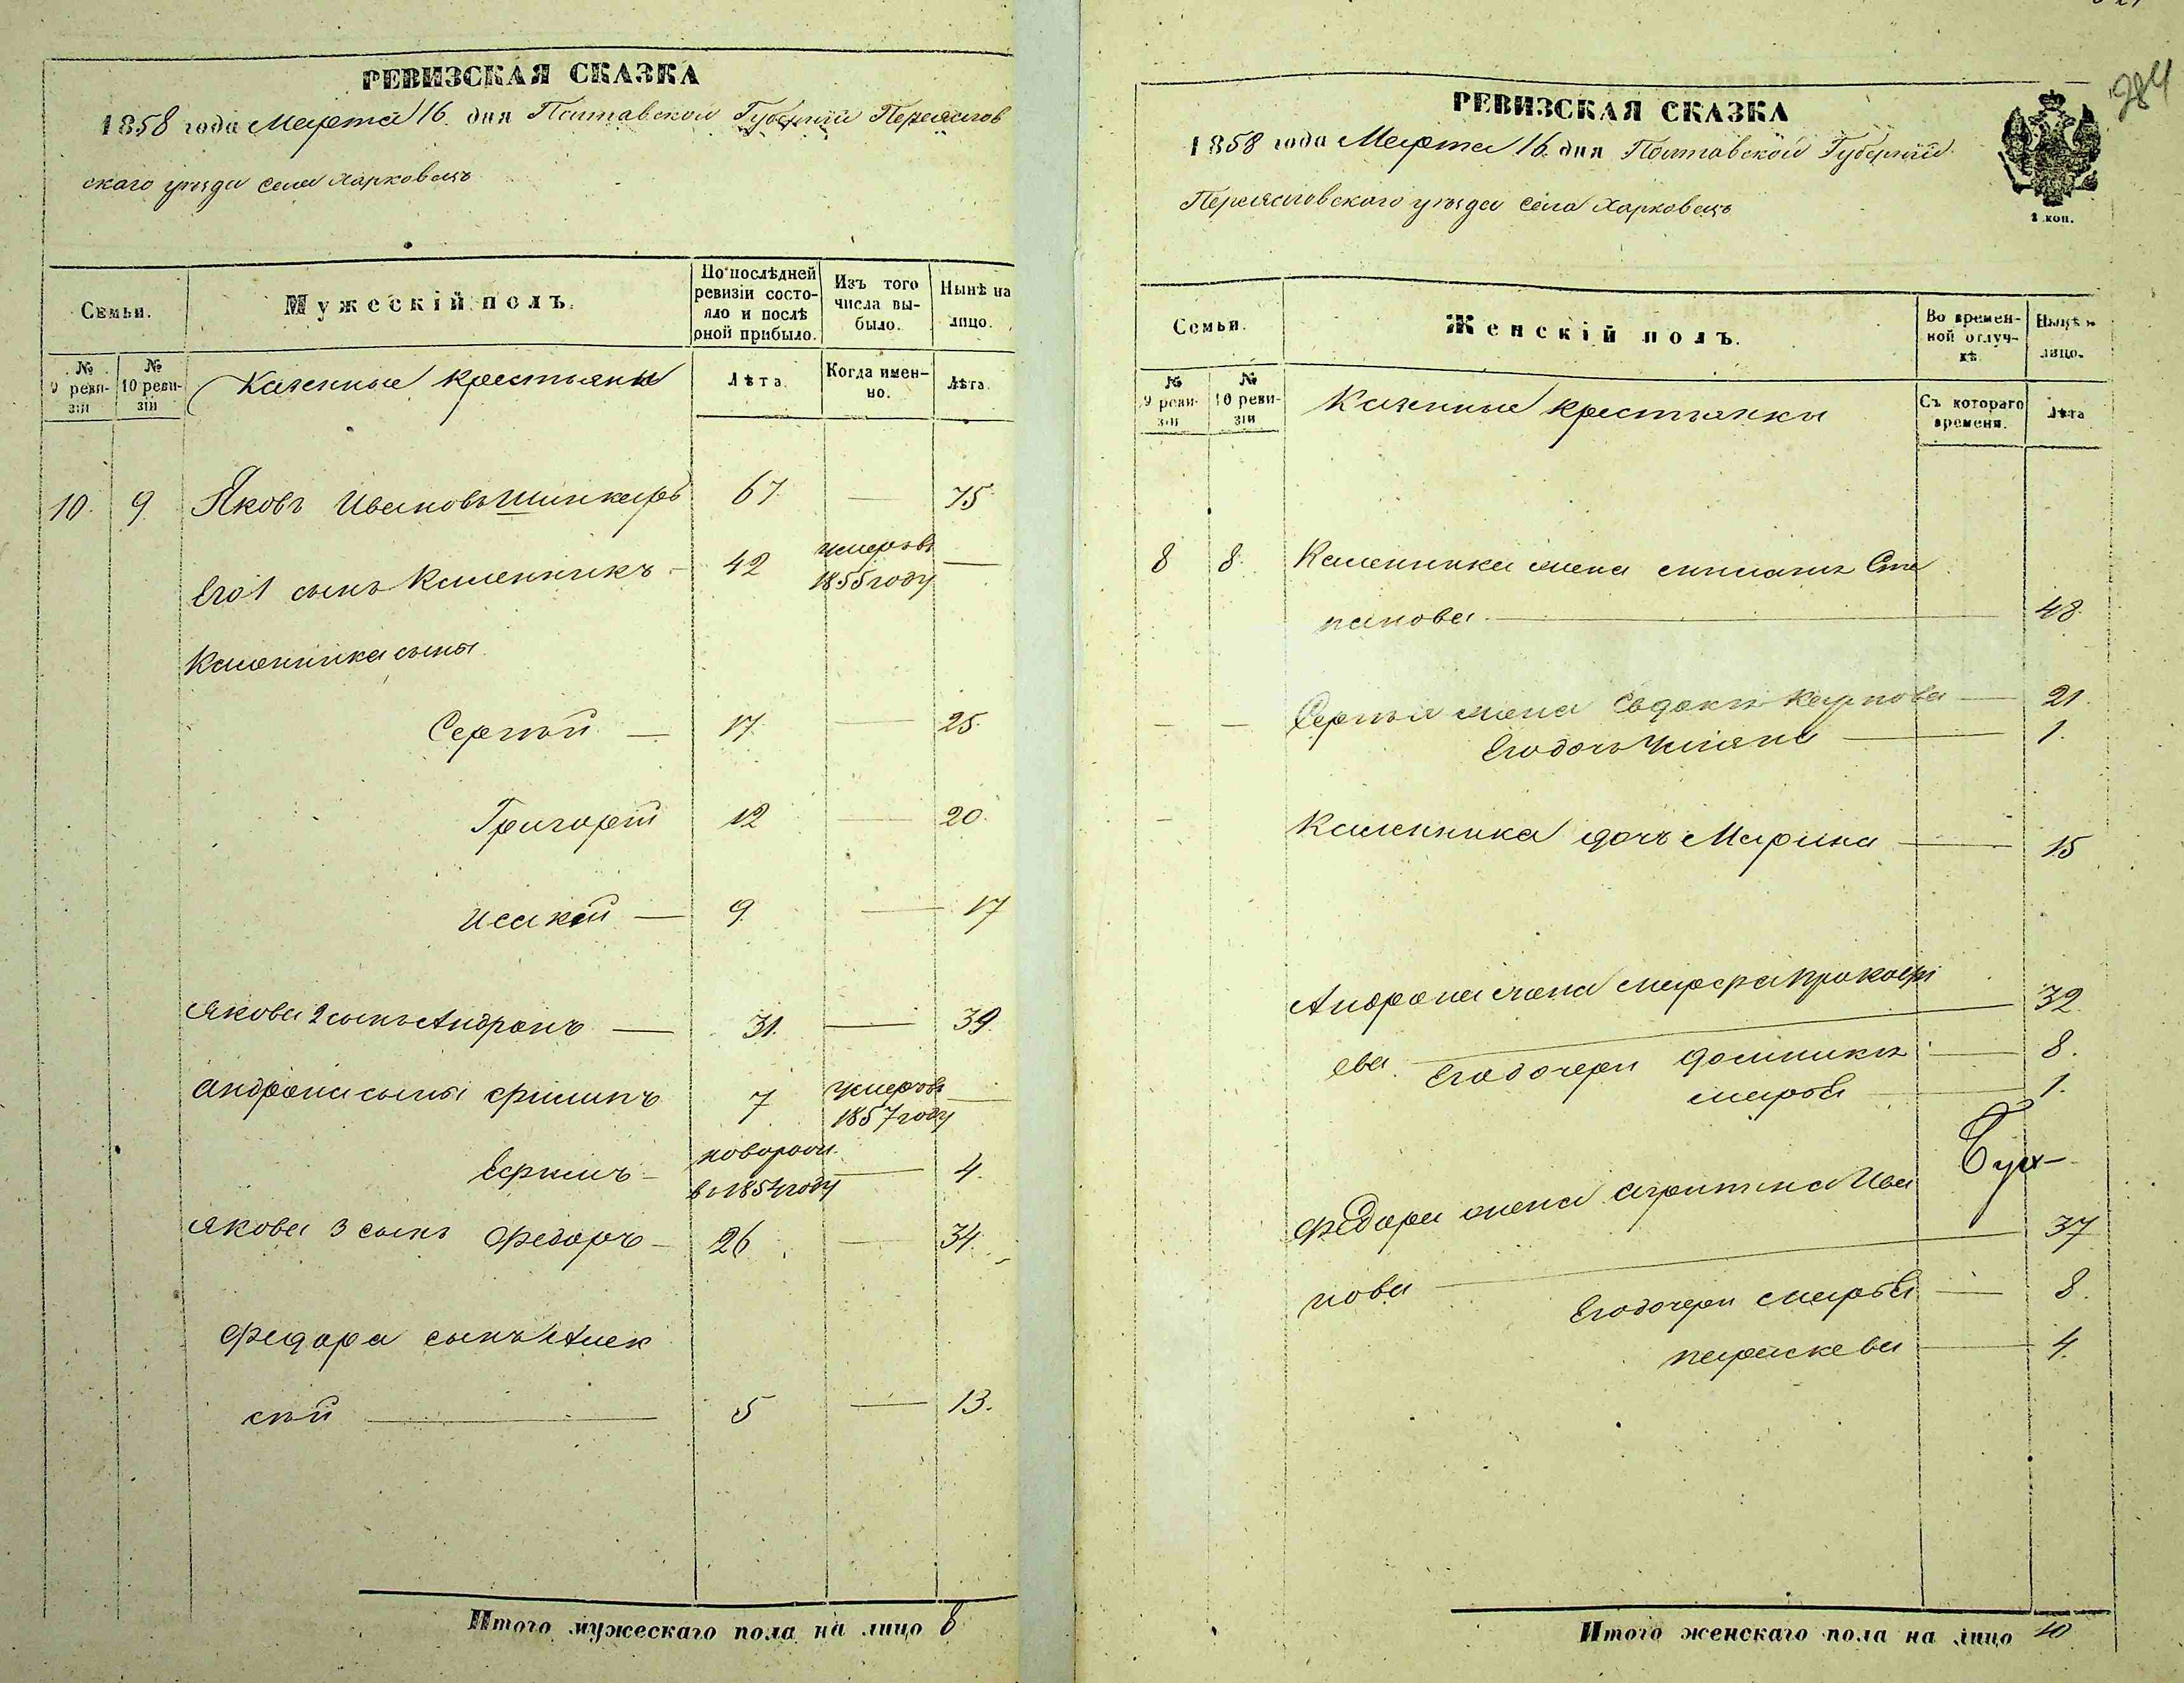 РЕВИЗСКАЯ СКАЗКА
1858 года Марта 16 дня Полтавской Губерніи Переяслов
скаго уѣзда села Харковецъ
Семьи.
Мужескій полъ.
По послѣдней ревизіи состояло и послѣ оной прибыло.
Изъ того числа выбыло.
Нынѣ на лицо.
№ 9 ревизіи
№ 10 ревизіи
Казенные крестьяне
Лѣта.
Когда именно.
Лѣта.
10. 9. Яковъ Ивановъ Шинкарь 67. — 75.
Его 1 сынъ Каленникъ — 42 умеръ въ 1855 году —
Каленника сыны
Сергѣй — 17. — 25.
Григорій 12 — 20.
Исакій — 9. — 17
Якова 2 сынъ Андронъ — 31. — 39.
Андрона сыны Филипъ 7 умеръ въ 1857 году —
Ефимъ — новорож. въ 1854 году — 4.
Якова 3 сынъ Федоръ — 26 — 34.
Федора сынъ Алек
сѣй — 5 — 13.
Итого мужескаго пола на лицо 8
284
РЕВИЗСКАЯ СКАЗКА
1858 года Марта 16 дня Полтавской Губерніи
Переясловскаго уѣзда села Харковецъ
2 коп.
Семьи.
Женскій полъ.
Во временной отлучкѣ.
Нынѣ на лицо.
№ 9 ревизіи
№ 10 ревизіи
Казенные крестьянки
Съ котораго времени.
Лѣта
8 8. Каленника жена Сте
панова — 48.
Сергѣя жена Евдокія Карпова — 21.
Его дочь Уліяна — 1.
Каленника дочь Марина — 15
Андрона жена Марфа Прокофі
ева — 32.
Его дочери Домникія — 8.
Марфа — 1.
Федора жена Агрипина Ива
нова — 37
Его дочери Марфа — 8.
Параскева — 4.
Итого женскаго пола на лицо 10